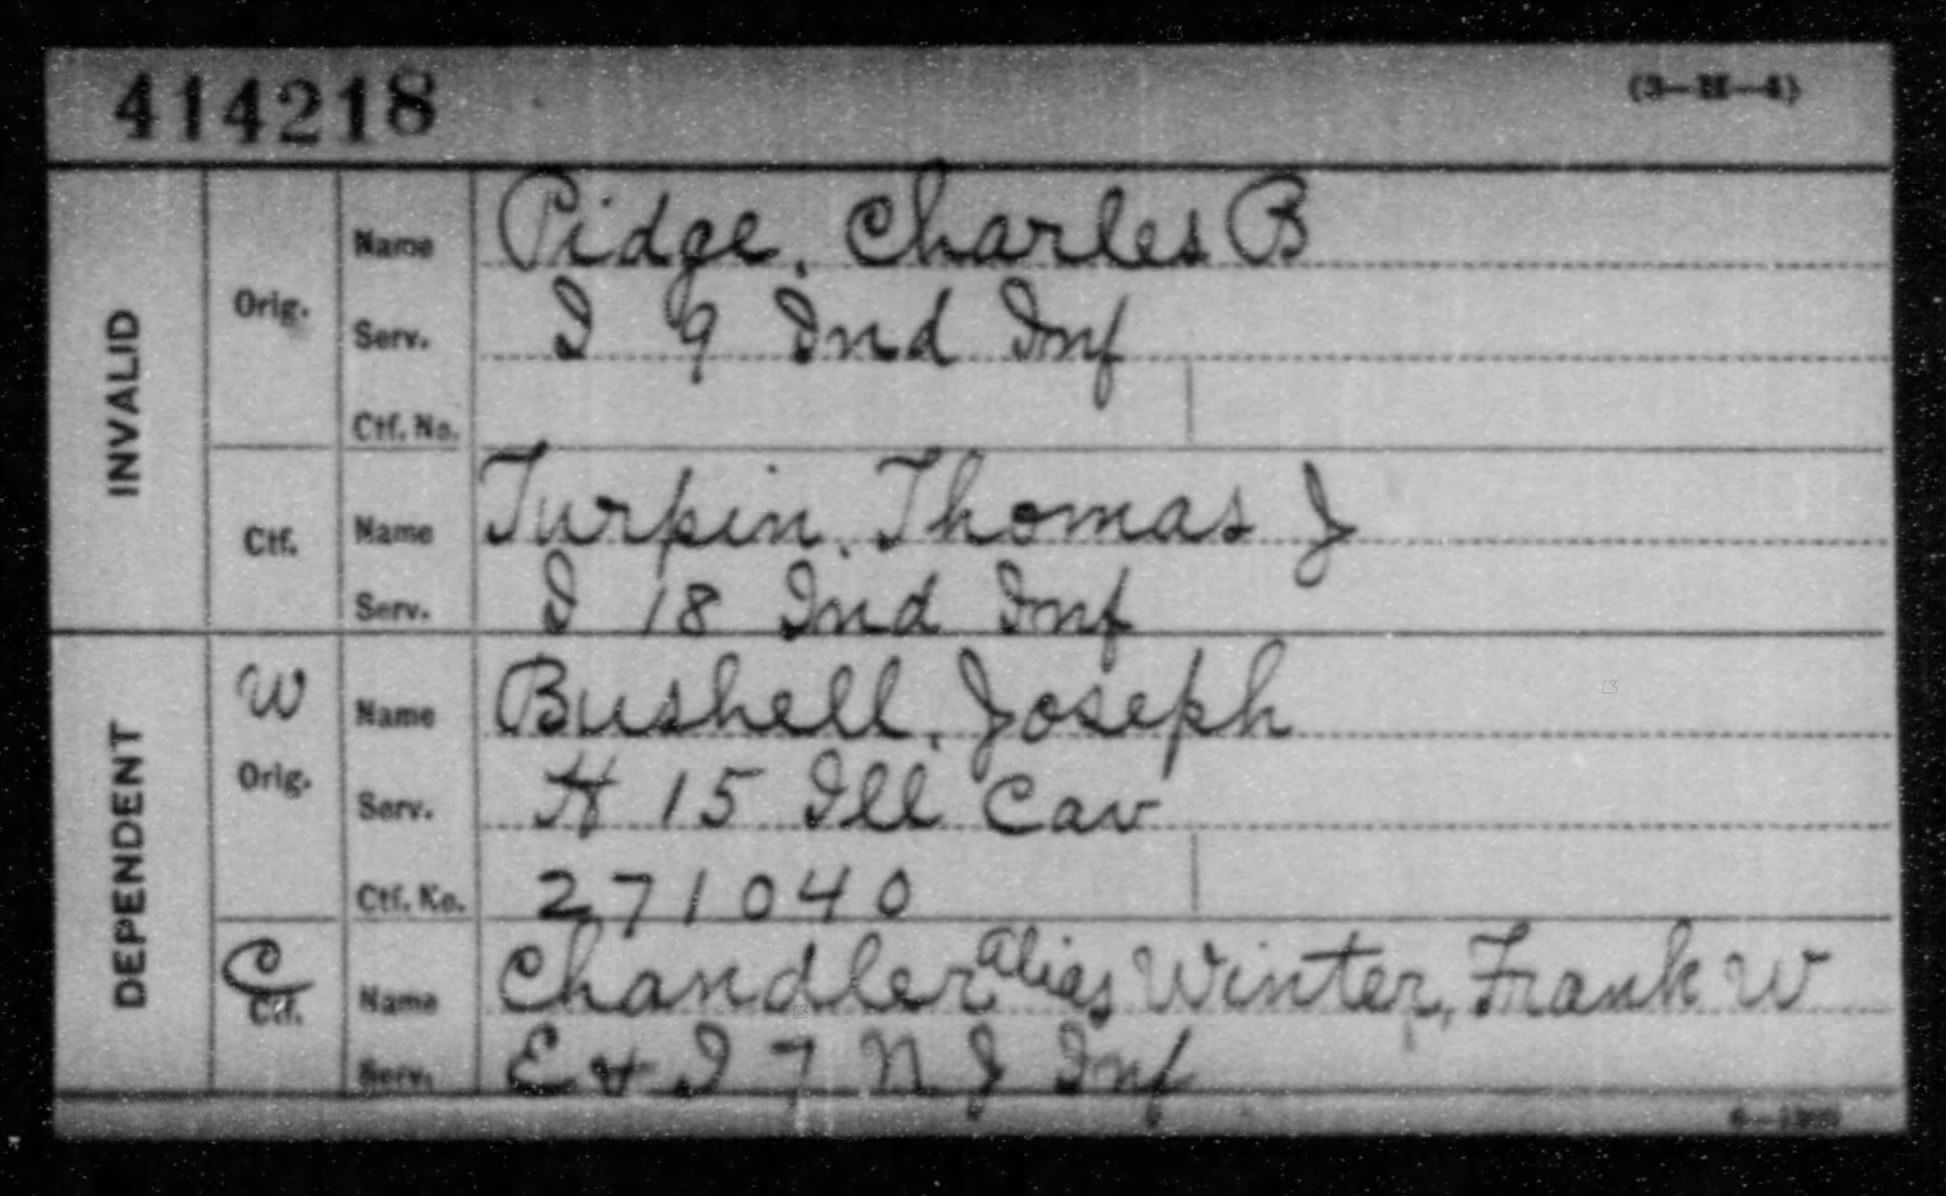 414218 (3—M—4)
INVALID
Orig.
Name Pidge, Charles B
Serv. I 9 Ind Inf
Ctf. No.
Ctf.
Name Turpin, Thomas J
Serv. I 18 Ind Inf
DEPENDENT
W
Orig.
Name Bushell, Joseph
Serv. H 15 Ill Cav
Ctf. No. 271040
C
Ctf.
Name Chandler alias Winter, Frank W
Serv. E & I 7 N J Inf